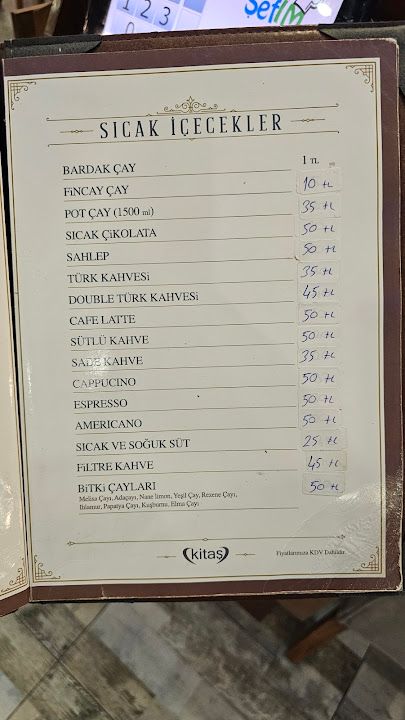 ŞefİM
1 2 3
0
SICAK İÇECEKLER
BARDAK ÇAY 1 TL
FiNCAY ÇAY 10 TL
POT ÇAY (1500 ml) 35 TL
SICAK ÇiKOLATA 50 TL
SAHLEP 50 TL
TÜRK KAHVESi 35 TL
DOUBLE TÜRK KAHVESi 45 TL
CAFE LATTE 50 TL
SÜTLÜ KAHVE 50 TL
SADE KAHVE 35 TL
CAPPUCINO 50 TL
ESPRESSO 50 TL
AMERICANO 50 TL
SICAK VE SOĞUK SÜT 25 TL
FiLTRE KAHVE 45 TL
BiTKi ÇAYLARI 50 TL
Melisa Çayı, Adaçayı, Nane limon, Yeşil Çay, Rezene Çayı,
Ihlamur, Papatya Çayı, Kuşburnu, Elma Çayı
kitaş
Fiyatlarımıza KDV Dahildir.